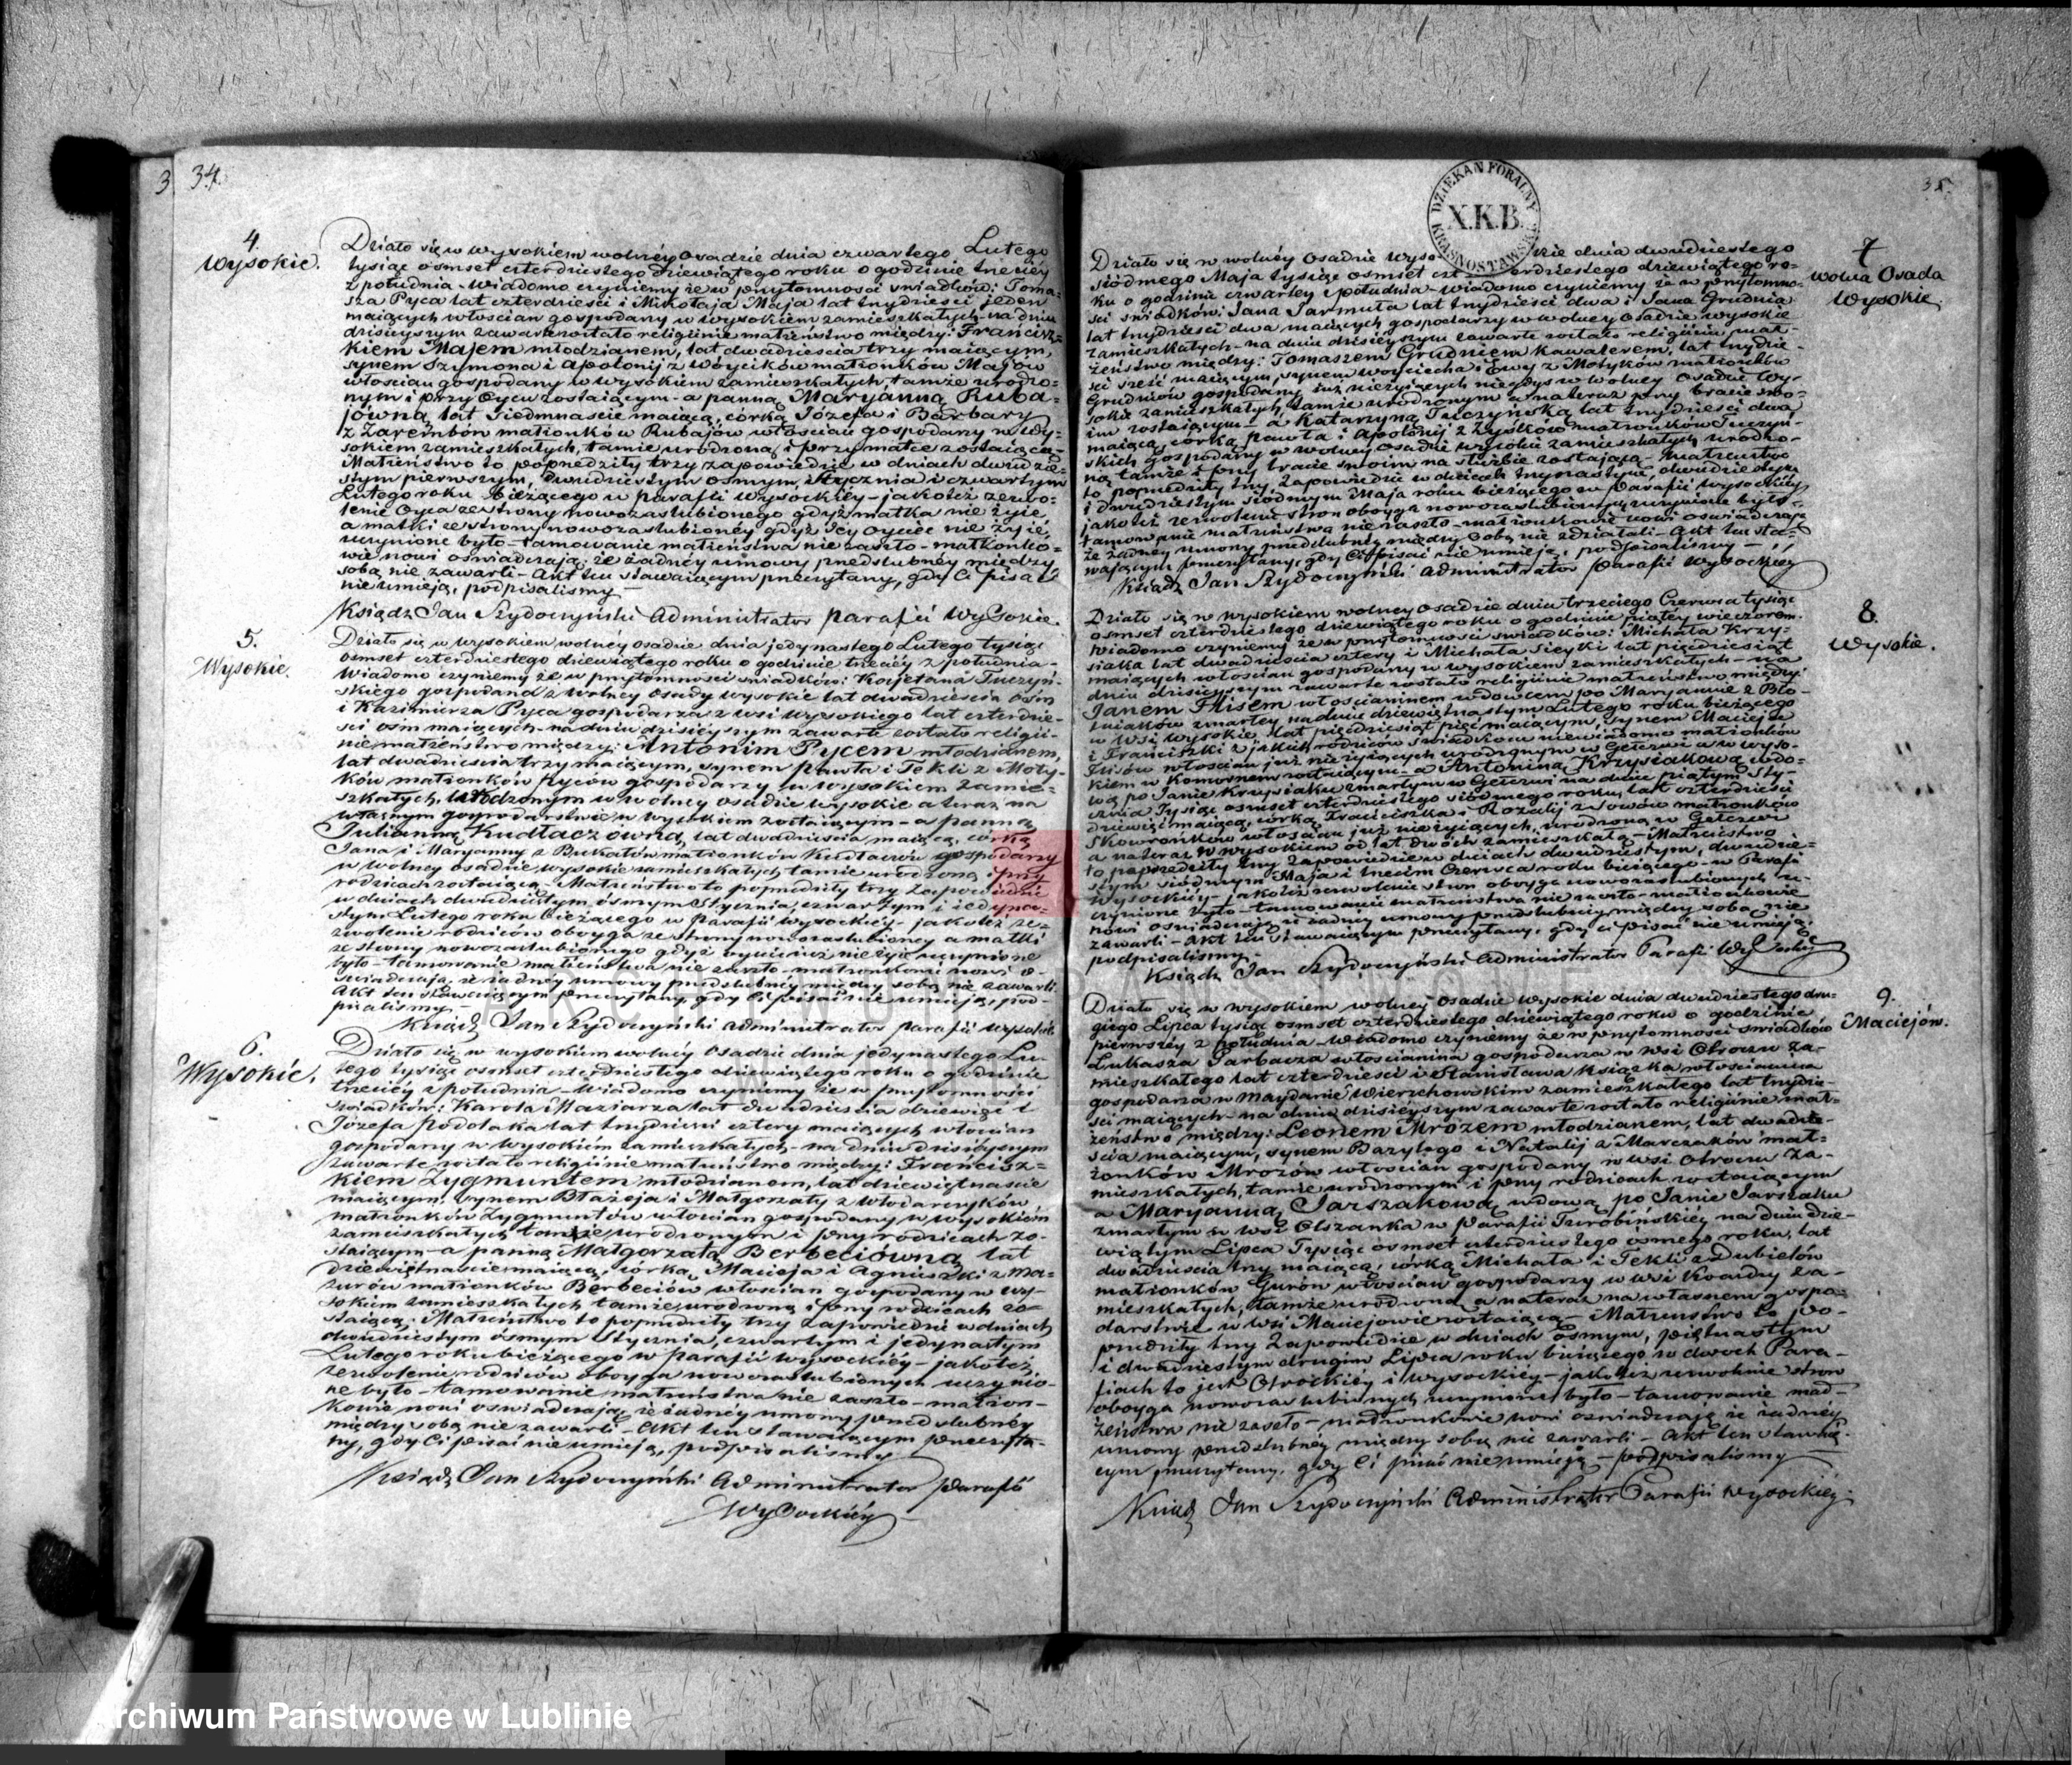 3 34.
4.
Wysokie.
Działo się w Wysokiem wolnéy Osadzie dnia czwartego Lutego
tysiąc osmset czterdziestego dziewiątego roku o godzinie trzeciéy
z południa - wiadomo czyniemy że w przytomności świadków: Toma-
sza Pyca lat czterdzieści i Mikołaja Maja lat trzydzieści jeden
maiących włościan gospodarzy w Wysokiem zamieszkałych - na dniu
dzisieyszym zawarte zostało religiinie małżeństwo między: Francisz-
kiem Majem młodzianem, lat dwadzieścia trzy maiącym,
synem Szymona i Apolonij z Wóycików małżonków Majów
włościan gospodarzy w Wysokiem zamieszkałych, tamże urodzo-
nym i przy Oycu zostaiącym - a panną Maryanną Ruba-
jówną lat siedmnaście maiącą, córką Józefa i Barbary
z Zarembów małżonków Rubajów włościan gospodarzy w Wy-
sokiem zamieszkałych, tamże urodzoną i przy matce zostaiącą -
Małżeństwo to poprzedziły trzy zapowiedzie w dniach dwudzie-
stym pierwszym, dwudziestym osmym, Stycznia i czwartym
Lutego roku bieżącego w parafii Wysockiéy - jakoteż zezwo-
lenie Oyca ze strony nowozaslubionego gdyż matka nie żyie,
a matki ze strony nowozaslubionéy gdyż iéy Oyciec nie żyie,
uczynione było - tamowanie małżeństwa nie zaszło - małżonko-
wie nowi oświadczają, że żadnéy umowy przedslubnéy między
sobą nie zawarli - Akt ten stawaiącym przeczytany, gdy Ci pisać
nie umieją, podpisalismy -
Ksiądz Jan Szydoczyński Administrator Parafii Wysokie.
5.
Wysokie.
Działo się w Wysokiem wolnéy Osadzie dnia jedynastego Lutego tysiąc
osmset czterdziestego dziewiątego roku o godzinie trzeciéy z południa -
Wiadomo czyniemy że w przytomności świadków: Kajetana Tuczyń-
skiego gospodarza z wolnéy Osady Wysokie lat dwadzieścia ośm
i Kazimierza Pyca gospodarza z wsi Wysokiego lat czterdzie-
ści ośm maiących - na dniu dzisieyszym zawarte zostało religii-
nie małżeństwo między: Antonim Pycem młodzianem,
lat dwadzieścia trzy maiącym, synem Pawła i Tekli z Moty-
ków małżonków Pyców gospodarzy w Wysokiem zamie-
szkałych, urodzonym w wolnéy Osadzie Wysokie a teraz na
własnym gospodarstwie w Wysokiem zostaiącym - a panną
Julianną Kudłaczówną, lat dwadzieścia maiącą, córką
Jana i Maryanny z Bukałów małżonków Kudłaczów gospodarzy
w wolnéy osadzie Wysokie zamieszkałych tamże urodzoną i przy
rodzicach zostaiącą - Małżeństwo to poprzedziły trzy zapowiedzie
w dniach dwudziestym ósmym Stycznia, czwartym i jedyna-
stym Lutego roku bieżącego w Parafii Wysockiéy - jakoteż ze-
zwolenie rodziców oboyga ze strony nowozaslubionéy a matki
ze strony nowozaslubionego gdyż oyciec iuż nie żyie uczynione
było - tamowanie małżeństwa nie zaszło - małżonkowie nowi o-
świadczają, że żadnéy umowy przedslubnéy między sobą nie zawarli
Akt ten stawaiącym przeczytany, gdy Ci pisać nie umieją, pod-
pisalismy.
Ksiądz Jan Szydoczyński Administrator parafii Wysokie
6.
Wysokie.
Działo się w Wysokiem wolnéy Osadzie dnia jedynastego Lu-
tego tysiąc osmset czterdziestego dziewiątego roku o godzinie
trzeciéy z południa - Wiadomo czyniemy że w przytomności
świadków: Karola Maziarza lat dwadzieścia dziewięć i
Józefa Podolaka lat trzydzieści cztery maiących włościan
gospodarzy w Wysokiém zamieszkałych - na dniu dzisieyszym
zawarte zostało religiinie małżeństwo między: Francisz-
kiem Zygmuntem młodzianem, lat dziewiętnaście
maiącym, synem Błażeja i Małgorzaty z Włodarczyków
małżonków Zygmuntów włościan gospodarzy w Wysokiém
zamieszkałych tamże urodzonym i przy rodzicach zo-
staiącym - a panną Małgorzatą Berbeciówną lat
dziewiętnaście maiącą, córką Macieja i Agnieszki z Ma-
zurów małżonków Berbeciów włościan gospodarzy w Wy-
sokiem zamieszkałych tamże urodzoną i przy rodzicach zo-
staiącą. Małżeństwo to poprzedziły trzy zapowiedzie w dniach
dwudziestym ósmym Stycznia, czwartym i jedynastym
Lutego roku bieżącego w Parafii Wysockiéy - jakoteż
zezwolenie rodziców oboyga nowozaslubionych uczynio-
ne było - tamowanie małżeństwa nie zaszło - małżon-
kowie nowi oświadczają, że żadnéy umowy przedslubnéy
między sobą nie zawarli - Akt ten stawaiącym przeczyta-
ny, gdy Ci pisać nie umieją, podpisalismy
Ksiądz Jan Szydoczyński Administrator Parafii
Wysockiéy
35.
DZIEKAN FORALNY
X.K.B.
KRASNOSTAWSKI
7
wolna Osada
Wysokie.
Działo się w wolnéy Osadzie Wysokie dnia dwudziestego
siódmego Maja tysiąc osmset czterdziestego dziewiątego ro-
ku o godzinie czwartéy z południa - wiadomo czyniemy że w przytomno-
ści świadków: Jana Jarmuła lat trzydzieści dwa i Jana Grudnia
lat trzydzieści dwa maiących gospodarzy w wolnéy Osadzie Wysokie
zamieszkałych - na dniu dzisieyszym zawarte zostało religiinie mał-
żeństwo między: Tomaszem Grudniem kawalerem, lat trzydzie-
ści sześć maiącym, synem Woyciecha i Ewy z Motyków małżonków
Grudniów gospodarzy już nieżyiących niegdyś w wolnéy Osadzie Wy-
sokie zamieszkałych, tamże urodzonym a na teraz przy bracie swo-
im zostaiącym - a Katarzyną Tuczyńską lat trzydzieści dwa
maiącą, córką Pawła i Apolonij z Zyśków małżonków Tuczyń-
skich gospodarzy w wolnéy Osadzie Wysokie zamieszkałych urodzo-
ną tamże i przy bracie swoim na służbie zostaiącą - Małżeństwo
to poprzedziły trzy zapowiedzie w dniach trzynastym, dwudziestym
i dwudziestym siódmym Maja roku bieżącego w Parafii Wysockiéy
jakoteż zezwolenie stron oboyga nowozaslubionych uczynione było -
tamowanie małżeństwa nie zaszło - małżonkowie nowi oświadczają
że żadnéy umowy przedslubnéy między sobą nie zdziałali - Akt ten sta-
waiącym przeczytany, gdy Ci pisać nie umieją, podpisalismy -
Ksiądz Jan Szydoczyński Administrator Parafii Wysockiéy
8.
Wysokie.
Działo się w Wysokiem wolnéy Osadzie dnia trzeciego Czerwca tysiąc
osmset czterdziestego dziewiątego roku o godzinie piątéy wieczorem.
Wiadomo czyniemy że w przytomności świadków: Michała Krzy-
siaka lat dwadzieścia cztery i Michała Sieyki lat pięćdziesiąt
maiących włościan gospodarzy w Wysokiem zamieszkałych - na
dniu dzisieyszym zawarte zostało religiinie małżeństwo między:
Janem Flisem włościaninem wdowcem po Maryannie z Bło-
tniaków zmarłéy na dniu dziewiętnastym Lutego roku bieżącego
w wsi Wysokie, lat pięćdziesiąt pięć maiącym, synem Macieja
i Franciszki z jakich rodziców świadkom niewiadomo małżonków
Flisów włościan już nieżyiących urodzonym w Giełczwi a w Wyso-
kiem w komornem zostaiącym - a Antoniną Krzysiakową wdo-
wą po Janie Krzysiaku zmarłym w Giełczwi na dniu piątym Sty-
cznia tysiąc osmset czterdziestego siódmego roku, lat czterdzieści
dziewięć maiącą, córką Franciszka i Rozalij z Sowów małżonków
Skowronków włościan już nieżyiących, urodzoną w Giełczwi
a na teraz w Wysokiem od lat dwóch zamieszkałą - Małżeństwo
to poprzedziły trzy zapowiedzie w dniach dwudziestym, dwudzie-
stym siódmym Maja i trzecim Czerwca roku bieżącego - w Parafii
Wysockiéy - jakoteż zezwolenie stron oboyga nowozaslubionych u-
czynione było - tamowanie małżeństwa nie zaszło - małżonkowie
nowi oświadczają że żadnéy umowy przedslubnéy między sobą nie
zawarli - Akt ten stawaiącym przeczytany, gdy Ci pisać nie umieją,
podpisalismy -
Ksiądz Jan Szydoczyński Administrator Parafi Wysockiéy
9.
Maciejów.
Działo się w Wysokiem wolnéy Osadzie Wysokie dnia dwudziestego dru-
giego Lipca tysiąc osmset czterdziestego dziewiątego roku o godzinie
pierwszéy z południa - wiadomo czyniemy że w przytomności świadków
Łukasza Garbacza włościanina gospodarza w wsi Otroczu za-
mieszkałego lat czterdzieści i Stanisława Książka włościanina
gospodarza w Maydanie Wierzchowskim zamieszkałego lat trzydzie-
ści maiących - na dniu dzisieyszym zawarte zostało religiinie mał-
żeństwo między: Leonem Mrozem młodzianem, lat dwadzie-
ścia maiącym, synem Bazylego i Natalij z Marczaków mał-
żonków Mrozów włościan gospodarzy w wsi Otroczu za-
mieszkałych, tamże urodzonym i przy rodzicach zostaiącym
a Maryanną Jarszakową wdową po Janie Jarszaku
zmarłym w wsi Olszanka w Parafii Turobińskiéy na dniu dzie-
wiątym Lipca tysiąc osmset czterdziestego osmego roku, lat
dwadzieścia trzy maiącą, córką Michała i Tekli z Dubielów
małżonków Gurów włościan gospodarzy w wsi Hoardy za-
mieszkałych, tamże urodzoną, a na teraz na własnem gospo-
darstwie w wsi Maciejowie zostaiącą - Małżeństwo to po-
przedziły trzy zapowiedzie w dniach ósmym, piętnastym
i dwudziestym drugim Lipca roku bieżącego w dwóch Para-
fiach to jest Otrockiéy i Wysockiéy - jakoteż zezwolenie stron
oboyga nowozaslubionych uczynione było - tamowanie mał-
żeństwa nie zaszło - małżonkowie nowi oświadczają że żadnéy
umowy przedslubnéy między sobą nie zawarli - Akt ten stawaią-
cym przeczytany, gdy Ci pisać nie umieją - podpisalismy
Ksiądz Jan Szydoczyński Administrator Parafii Wysockiéy.
Archiwum Państwowe w Lublinie